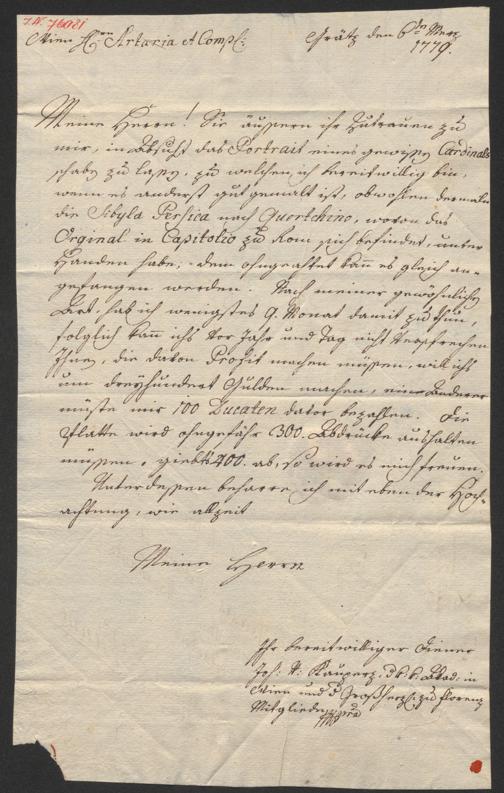 I.N. 76081
Wien Hrn Artaria et Comp:
Grätz den 6ten Merz
1779.
Meine Herrn! Sie äussern ihr Zutrauen zu
mir, in Absicht das Portrait eines gewissen Cardinals
schaben zu lassen, zu welchen ich bereitwillig bin,
wenn es anderst gut gemalt ist, obwohlen dermalen
die Sibyla Persica nach Guertchino, wovon das
Orginal in Capitolio zu Rom sich befindet, unter
Handen habe, dem ohngeachtet kann es gleich an-
gefangen werden. Nach meiner gewöhnlichen
Art, hab ich wenigstes 9. Monat damit zu thun,
folglich kann ichs vor Jahr und Tag nicht versprechen
Ihnen, die davon Profit machen müssen, will ichs
um dreyhundert Gulden machen, ein Anderer
müste mir 100 Ducaten davor bezahlen. Die
Platte wird ohngefähr 300. Abdrücke aushalten
müssen, giebts 400. ab, so wird es mich freuen.
Unterdessen beharre ich mit eben der Hoch-
achtung, wie allzeit
Meine Herrn
Ihr bereitwilliger Diener
Joh: V: Kauperz, d k. k. Akad: in
Wien und d Großherzl: zu Florenz
Mitglied